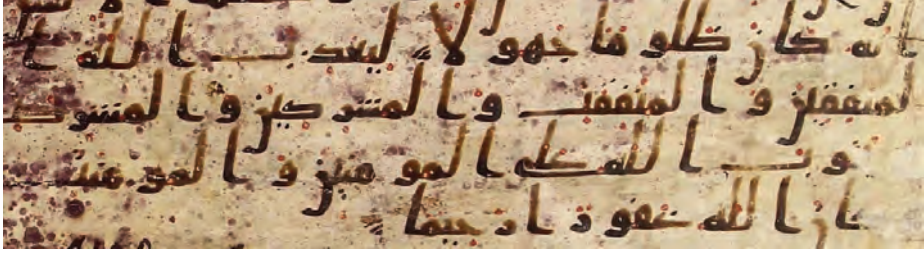 انه كان ظلوما جهولا ليعذب الله ا
لمنفقين والمنفقت والمشركين والمشركت
وب الله على المومنين والمومنت
ان الله غفورا رحيما